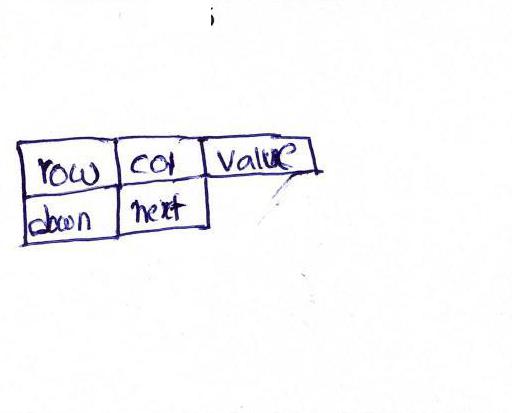 row col value
down next